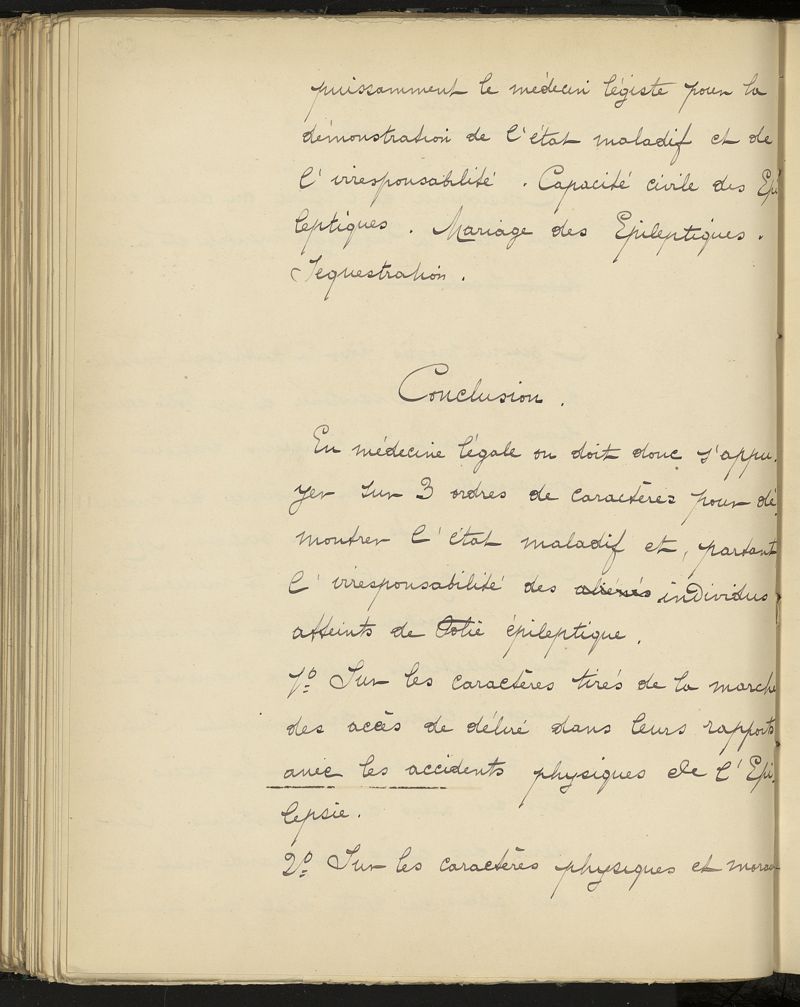 puissamment le médecin légiste pour la
démonstration de l'état maladif et de
l'irresponsabilité. Capacité civile des Epi
leptiques. Mariage des Epileptiques.
Séquestration.
Conclusion.
En médecine légale on doit donc s'appu-
yer sur 3 ordres de caractères pour dé
montrer l'état maladif et, partant
l'irresponsabilité des aliénés individus
atteints de folie épileptique.
1º Sur les caractères tirés de la marche
des accès de délire dans leurs rapports
avec les accidents physiques de l'Epi-
lepsie.
2º Sur les caractères physiques et moraux